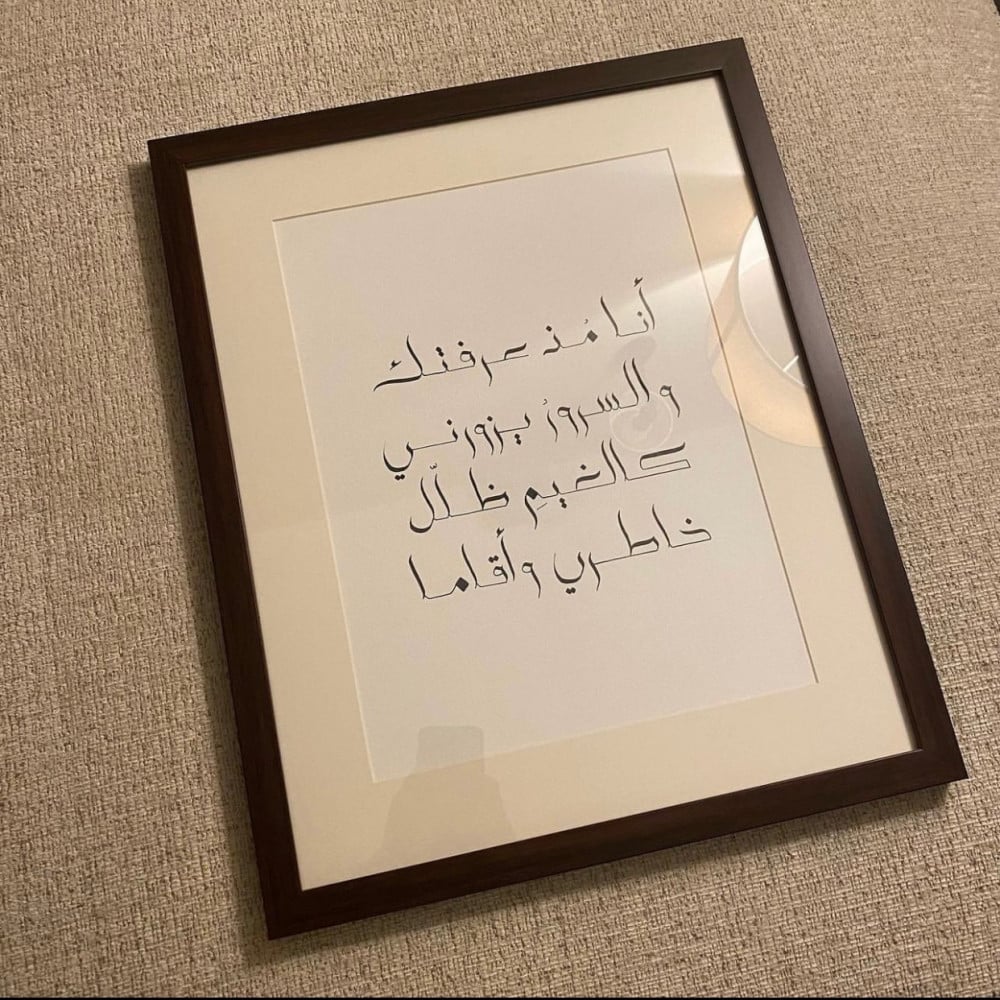 أنا مُذ عرفتك
والسرورُ يزورني
كالغيمِ ظلّل
خاطري وأقاما